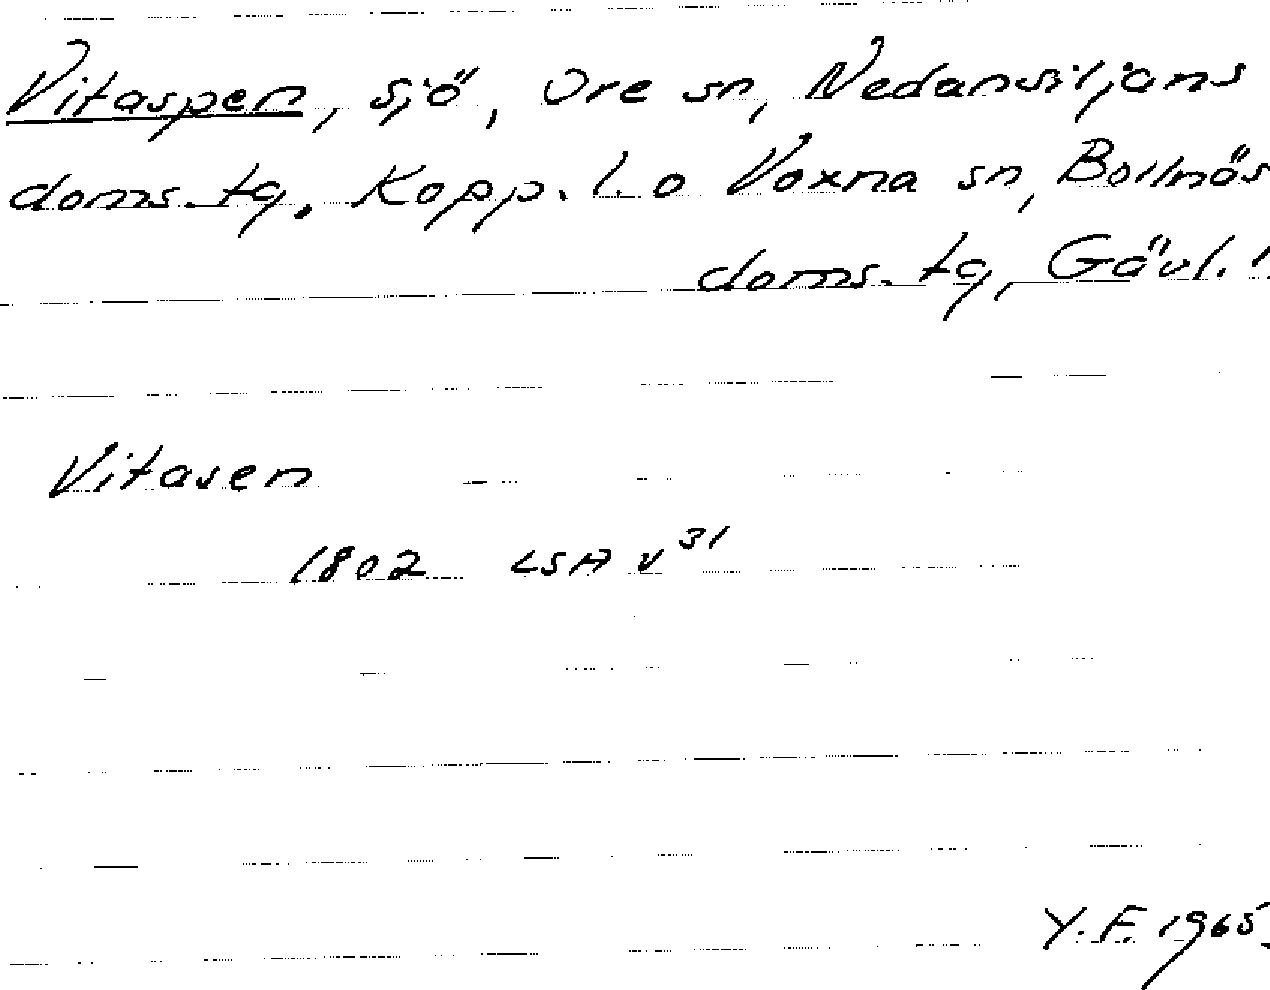 Vitaspen, sjö, Ore sn, Nedansiljans
doms.tg. Kopp. l. o Voxna sn, Bollnäs
doms. tg, Gävl. l
Vitasen
1802 LSA v 31
Y.F. 1965.